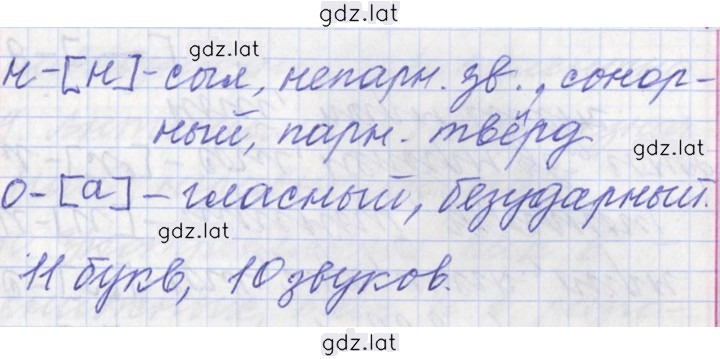 gdz.lat
gdz.lat
н-[н]-сыл, непарн. зв., сонор-
ный, парн. твёрд
gdz.lat
о-[а]-гласный, безударный.
gdz.lat
11 букв, 10 звуков.
gdz.lat